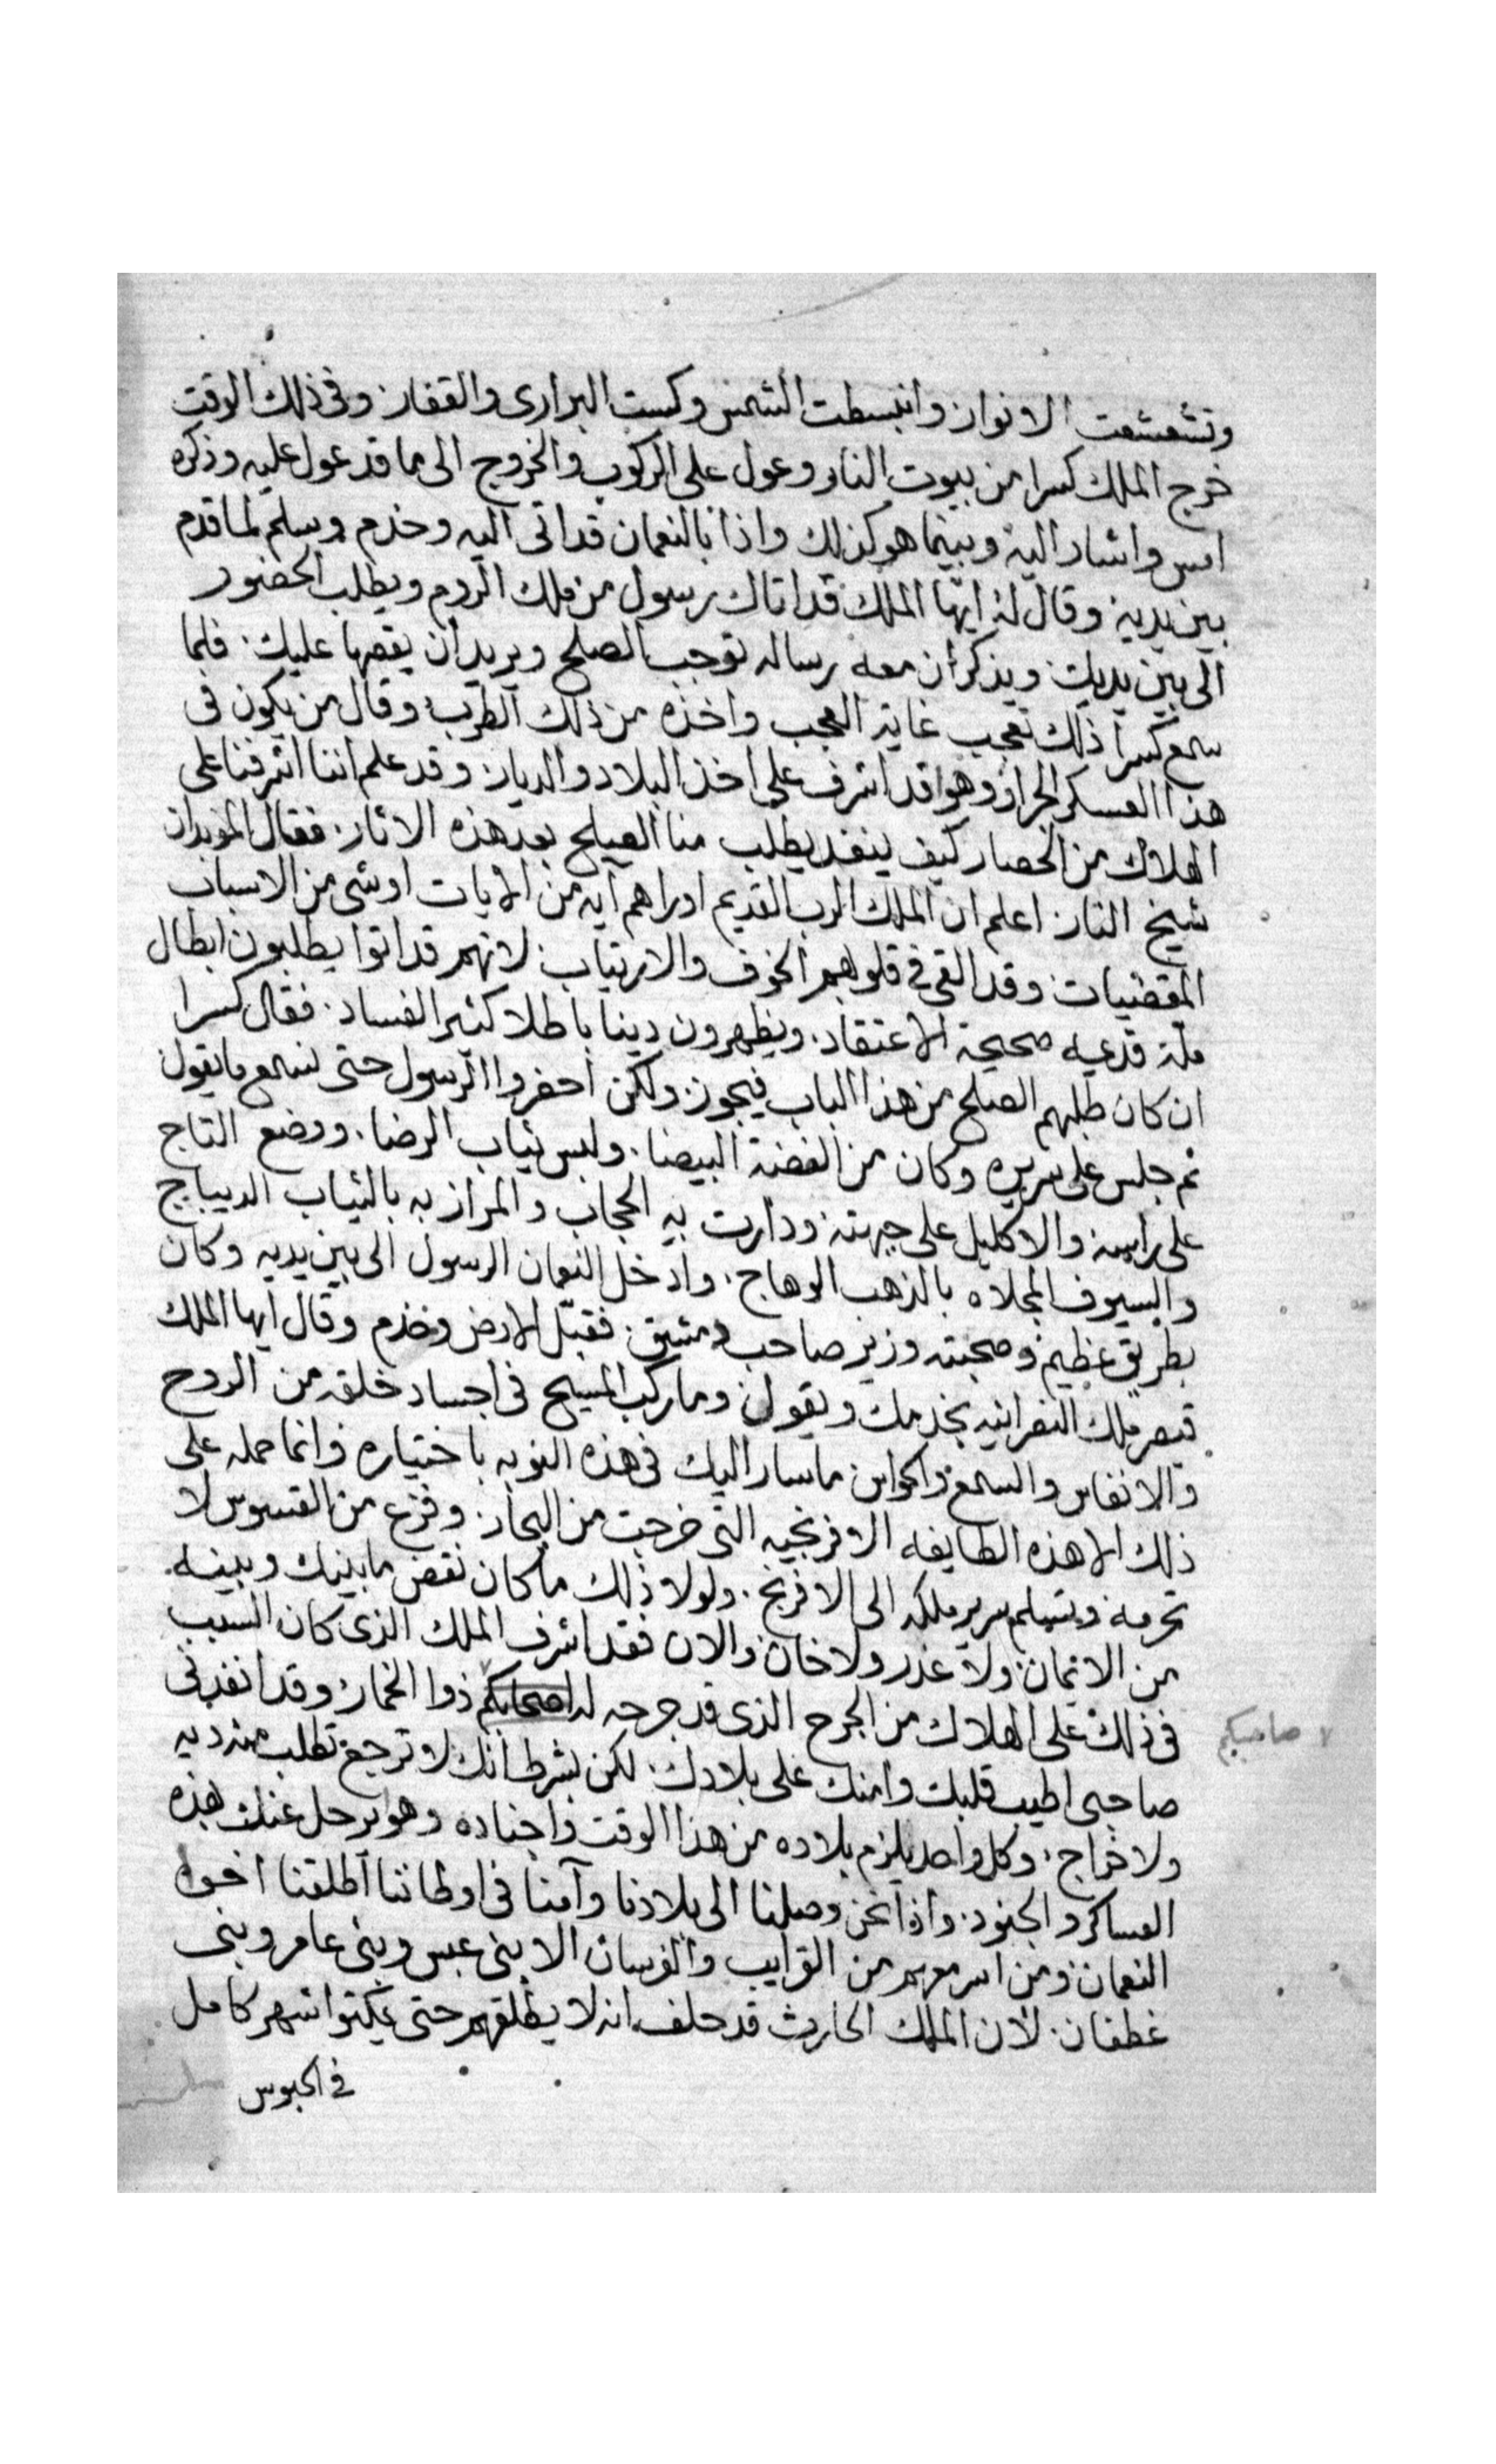 وتشعشعت الانوار وانبسطت الشمس وكست البرارى والقفار وفى ذلك الوقت
خرج الملك كسرا من بيوت النار وعول على الركوب والخروج الى ما قد عول عليه وذكره
امس واشار اليه وبينما هو كذلك واذا بالنعمان قد اتى اليه وخدم وسلم لما قدم
بين يديه وقال له ايها الملك قد اتاك رسول من ملك الروم ويطلب الحضور
الى بين يديك ويذكر ان معه رساله توجب الصلح ويريد ان يقصها عليك فلما
سمع كسرا ذلك تعجب غاية العجب واخذه من ذلك الطرب وقال من يكون فى
هذا العسكر الجرار وهو قد اشرف على اخذ البلاد والديار وقد علم اننا اشرفنا على
الهلاك من الحصار كيف ينفد يطلب منا الصلح بعد هذه الاثار فقال الموبدان
شيخ النار اعلم ان الملك الرب القديم اوراهم آيه من الايات او شى من الاسباب
المقضيات وقد القى فى قلوبهم الخوف والارتياب لانهم قد اتوا يطلبون ابطال
ملة قدعيه صحيحة الاعتقاد ويظهرون دينا باطلا كثير الفساد فقال كسرا
ان كان طلبهم الصلح من هذا الباب فيجوز ولكن احضروا الرسول حتى نسمع ما يقول
ثم جلس على سريره وكان من الفضة البيضا ولبس ثياب الرضا ووضع التاج
على راسه والاكليل على جبهته ودارت به الحجاب والمرازبه بالثياب الديباج
والسيوف المجلاه بالذهب الوهاج وادخل النعمان الرسول الى بين يديه وكان
بطريق عظيم وصحبته وزير صاحب دمشق فقبل الارض وخدم وقال ايها الملك
قيصر ملك النصرانيه يخدمك ويقول وما ركب المسيح فى اجساد خلقه من الروح
والانفاس والسمع والحواس ما سار اليك فى هذه النوبه باختياره وانما حمله على
ذلك الا هذه الطايفه الافرنجيه التى خرجت من البحار وفزع من القسوس لا
تحرمه وتسلم سرير ملكه الى الافرنج ولولا ذلك ما كان نقض ما بينك وبينه
من الايمان ولا غدر ولا خان والان فقد اشرف الملك الذى كان السبب
فى ذلك على الهلاك من الجرح الذى قد جرحه له اصحابكم ذوا الخمار وقد انفدنى
صاحبكم
صاحبى اطيب قلبك وامنك على بلادك لكن بشرط انك لا ترجع تطلب منه ديه
ولا خراج وكل واحد يلزم بلاده من هذا الوقت واجناده وهو يرحل عنك بهذه
العساكر والجنود واذا نحن وصلنا الى بلادنا وآمنا فى اوطاننا اطلقنا اخوا
النعمان ومن اسر معهم من القرايب والفرسان الا بنى عبس وبنى عامر وبنى
غطفان لان الملك الحارث قد حلف انه لا يطلقهم حتى يمكثوا شهر كامل
فى الحبوس